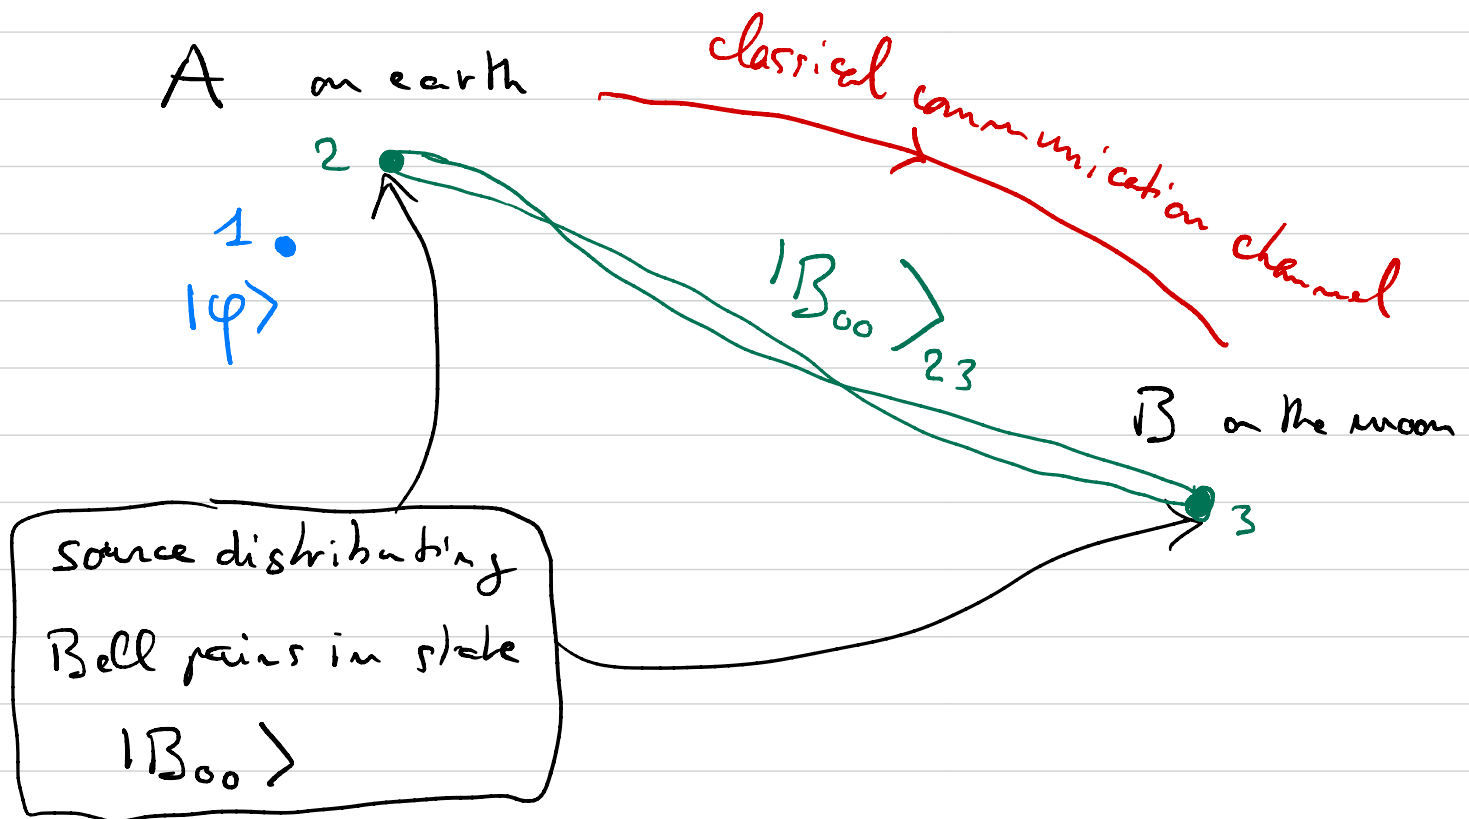 A on earth
classical communication channel
2
1
|φ⟩
|B₀₀⟩₂₃
B on the moon
3
source distributing
Bell pairs in state
|B₀₀⟩